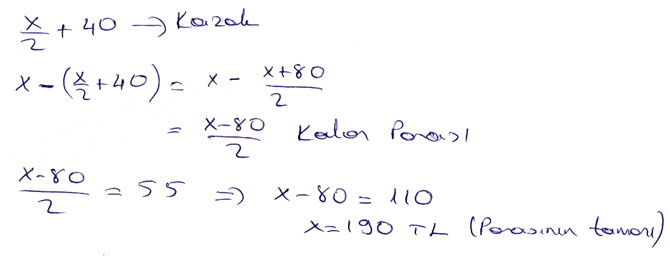 x/2 + 40 → Kazak
x - (x/2 + 40) = x - (x+80)/2
= (x-80)/2 Kalan Parası
(x-80)/2 = 55 ⇒ x-80 = 110
x=190 TL (Parasının tamamı)